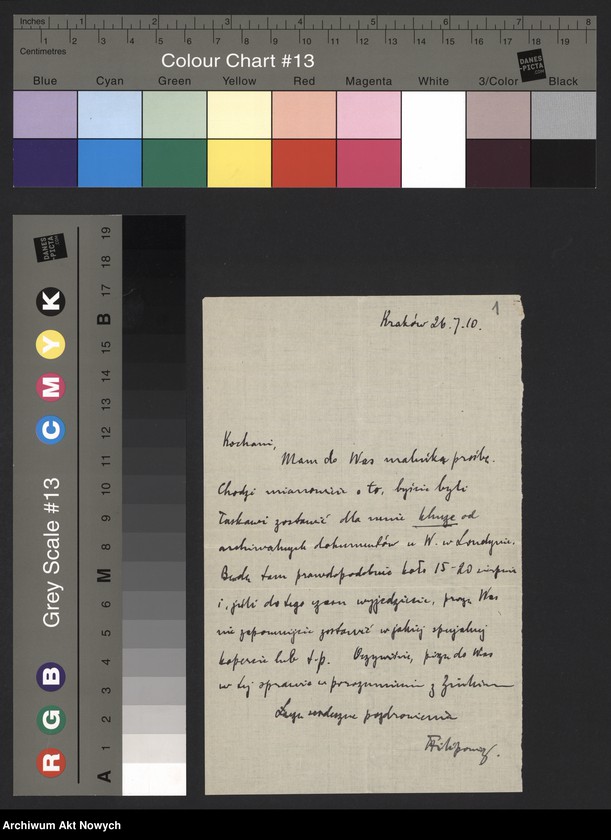 Inches 1 2 3 4 5 6 7 8
Centimetres 1 2 3 4 5 6 7 8 9 10 11 12 13 14 15 16 17 18 19
Colour Chart #13
DANES-PICTA.COM
Blue Cyan Green Yellow Red Magenta White 3/Color Black
Grey Scale #13
R G B C M Y K
DANES-PICTA.COM
A 1 2 3 4 5 6 M 8 9 10 11 12 13 14 15 B 17 18 19
1
Kraków 26.7.10.
Kochani,
Mam do Was maleńką prośbę.
Chodzi mianowicie o to, byście byli
łaskawi zostawić dla mnie klucze od
archiwalnych dokumentów u W. w Londynie.
Będę tam prawdopodobnie koło 15-20 sierpnia
i, jeśli do tego czasu wyjedziecie, proszę Was
nie zapomnijcie zostawić w jakiej specjalnej
kopercie lub t.p. Oczywiście, piszę do Was
w tej sprawie w porozumieniu z
Łączę serdeczne pozdrowienia
Filipowicz.
Archiwum Akt Nowych